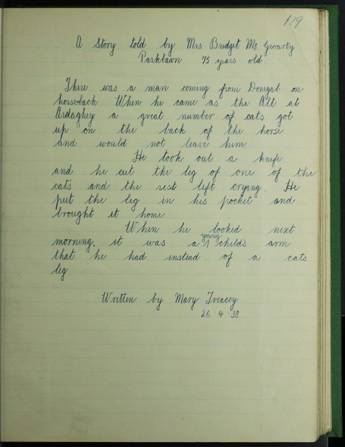 119
A Story told by Mrs Bridget Mc Greasty
Parkbawn 75 years old
There was a man coming from Donegal on
horseback When he came as the Alt at
Ardaghey a great number of cats got
up on the back of the horse
and would not leave him
He took out a knife
and he cut the leg of one of the
cats and the rest left crying. He
put the leg in his pocket and
brought it home
When he looked next
morning, it was a young childs arm
that he had instead of a cats
leg
Written by Mary Treacey
26 4 38